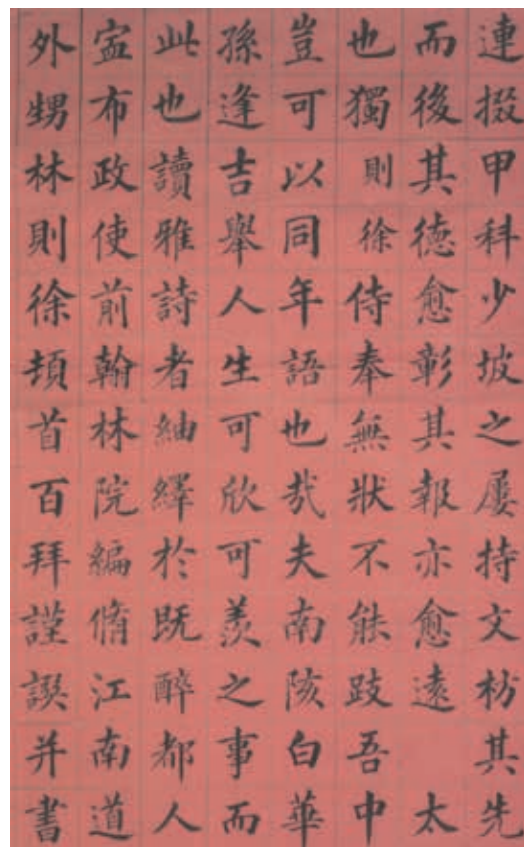 連掇甲科少坡之屢持文枋其先
而後其德愈彰其報亦愈遠太
也獨則徐侍奉無狀不能跂吾中
豈可以同年語也哉夫南陔白華
孫逢吉舉人生可欣可羨之事而
此也讀雅詩者紬繹於既醉都人
寍布政使前翰林院編脩江南道
外甥林則徐頓首百拜謹譔并書